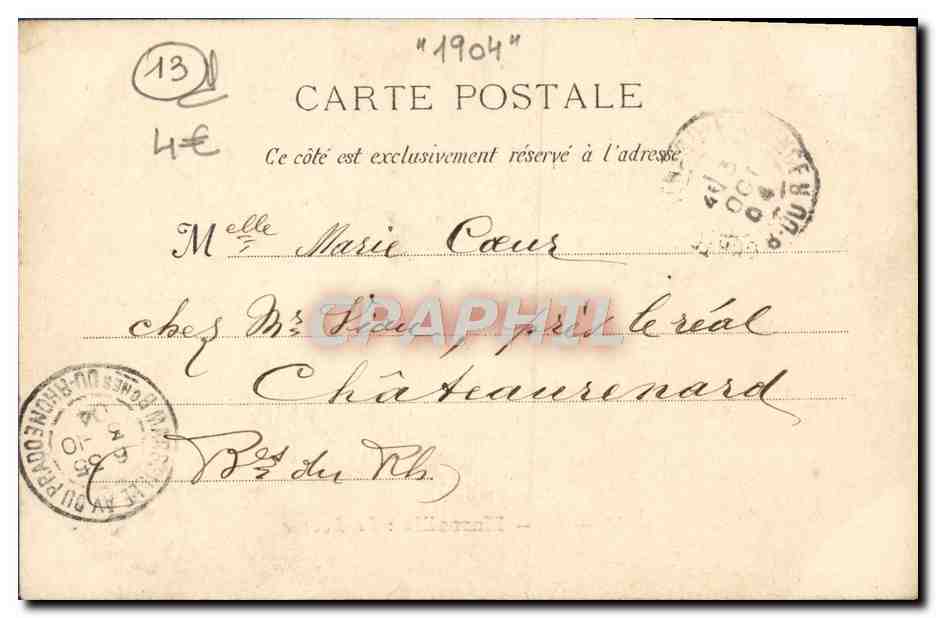 "1904"
13
4€
CARTE POSTALE
Ce côté est exclusivement réservé à l'adresse
Melle Marie Cœur
chez Mr Lion, près le réal
Châteaurenard
(Bes du Rh.
CPAPHIL
MARSEILLE AV. DU PRADO
BCHES DU-RHONE
6 35
3 -10
04
3
OCT
04